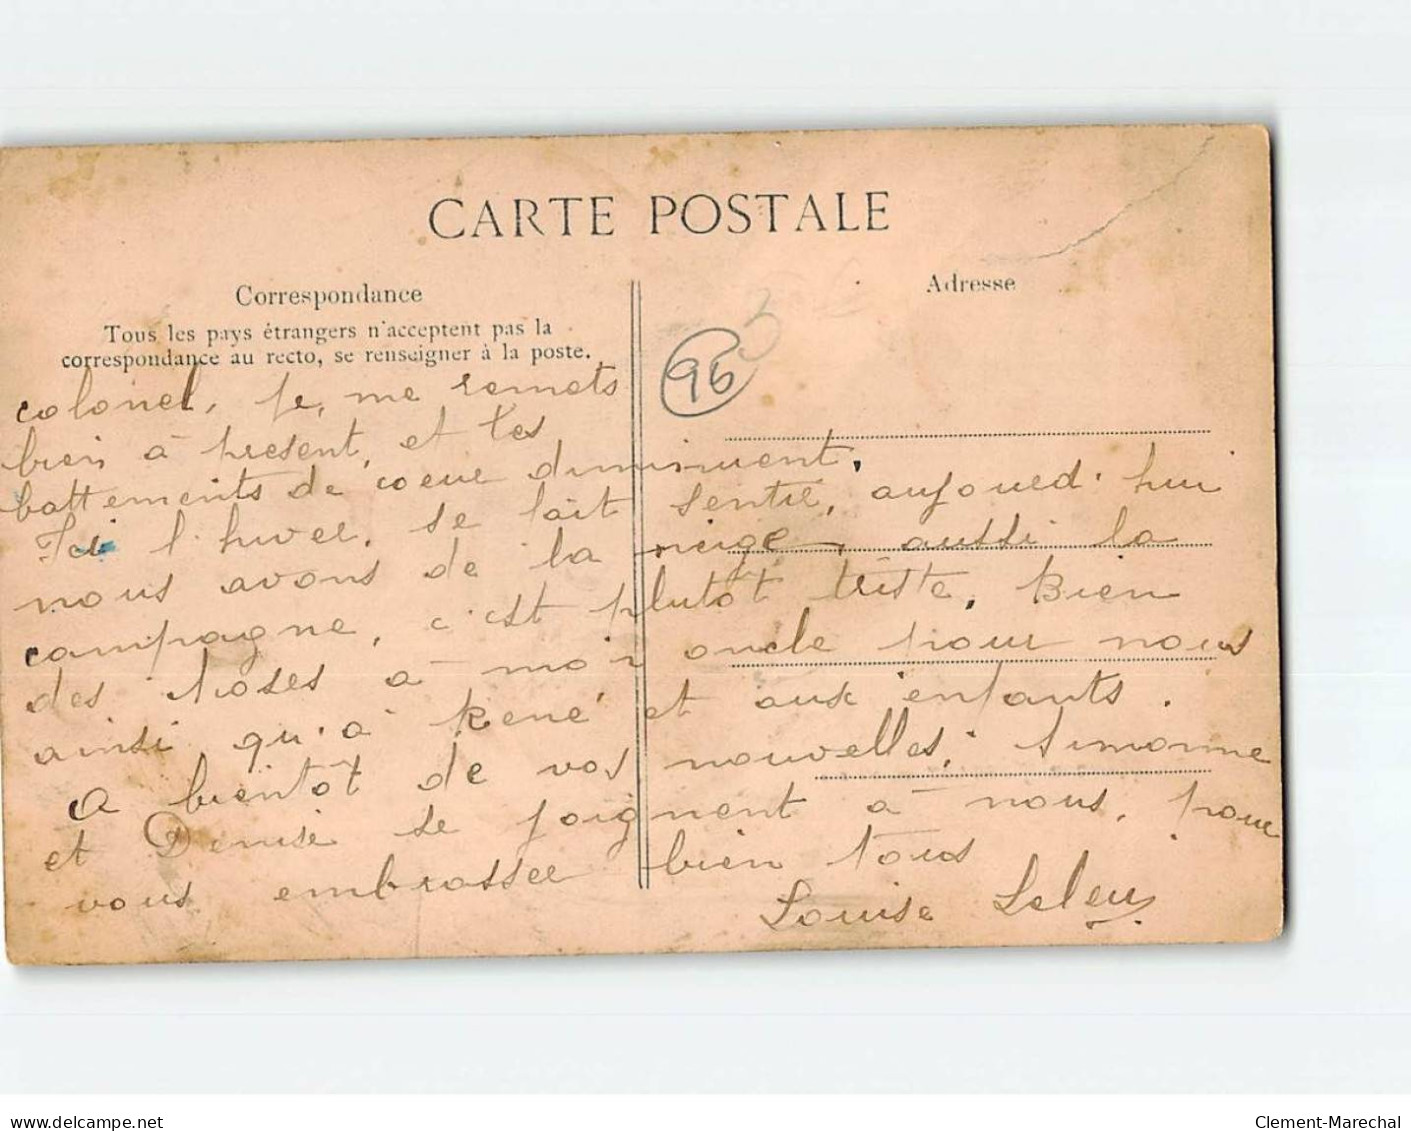 CARTE POSTALE
Correspondance
Tous les pays étrangers n'acceptent pas la
correspondance au recto, se renseigner à la poste.
Adresse
96
3
colonel, je, me remets
bien à présent, et les
battements de coeur diminuent.
Ici l'hiver, se fait sentir, aujourd'hui
nous avons de la neige, aussi la
campagne, c'est plutôt triste. Bien
des choses à mon oncle pour nous
ainsi qu'à René et aux enfants.
A bientôt de vos nouvelles, Simonne
et Denise se joignent à nous, pour
vous embrasser bien tous
Louise Leleu
www.delcampe.net
Clement-Marechal